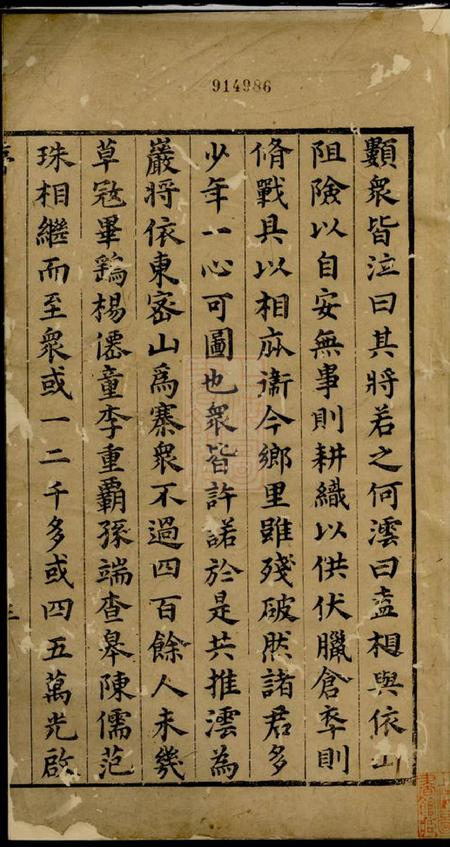 914986
顥衆皆泣曰其將若之何澐曰盍相與依山
阻險以自安無事則耕織以供伏臘倉卒則
脩戰具以相庇衞今鄉里雖殘破然諸君多
少年一心可圖也衆皆許諾於是共推澐為
巖將依東密山為寨衆不過四百餘人未幾
草冦畢鷂楊僊童李重霸孫端查皋陳儒范
珠相繼而至衆或一二千多或四五萬光啟